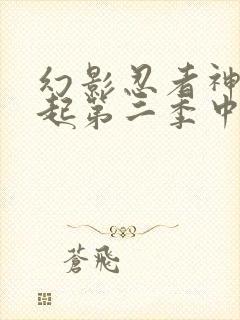 幻影忍者神
起第三季中
蒼飛